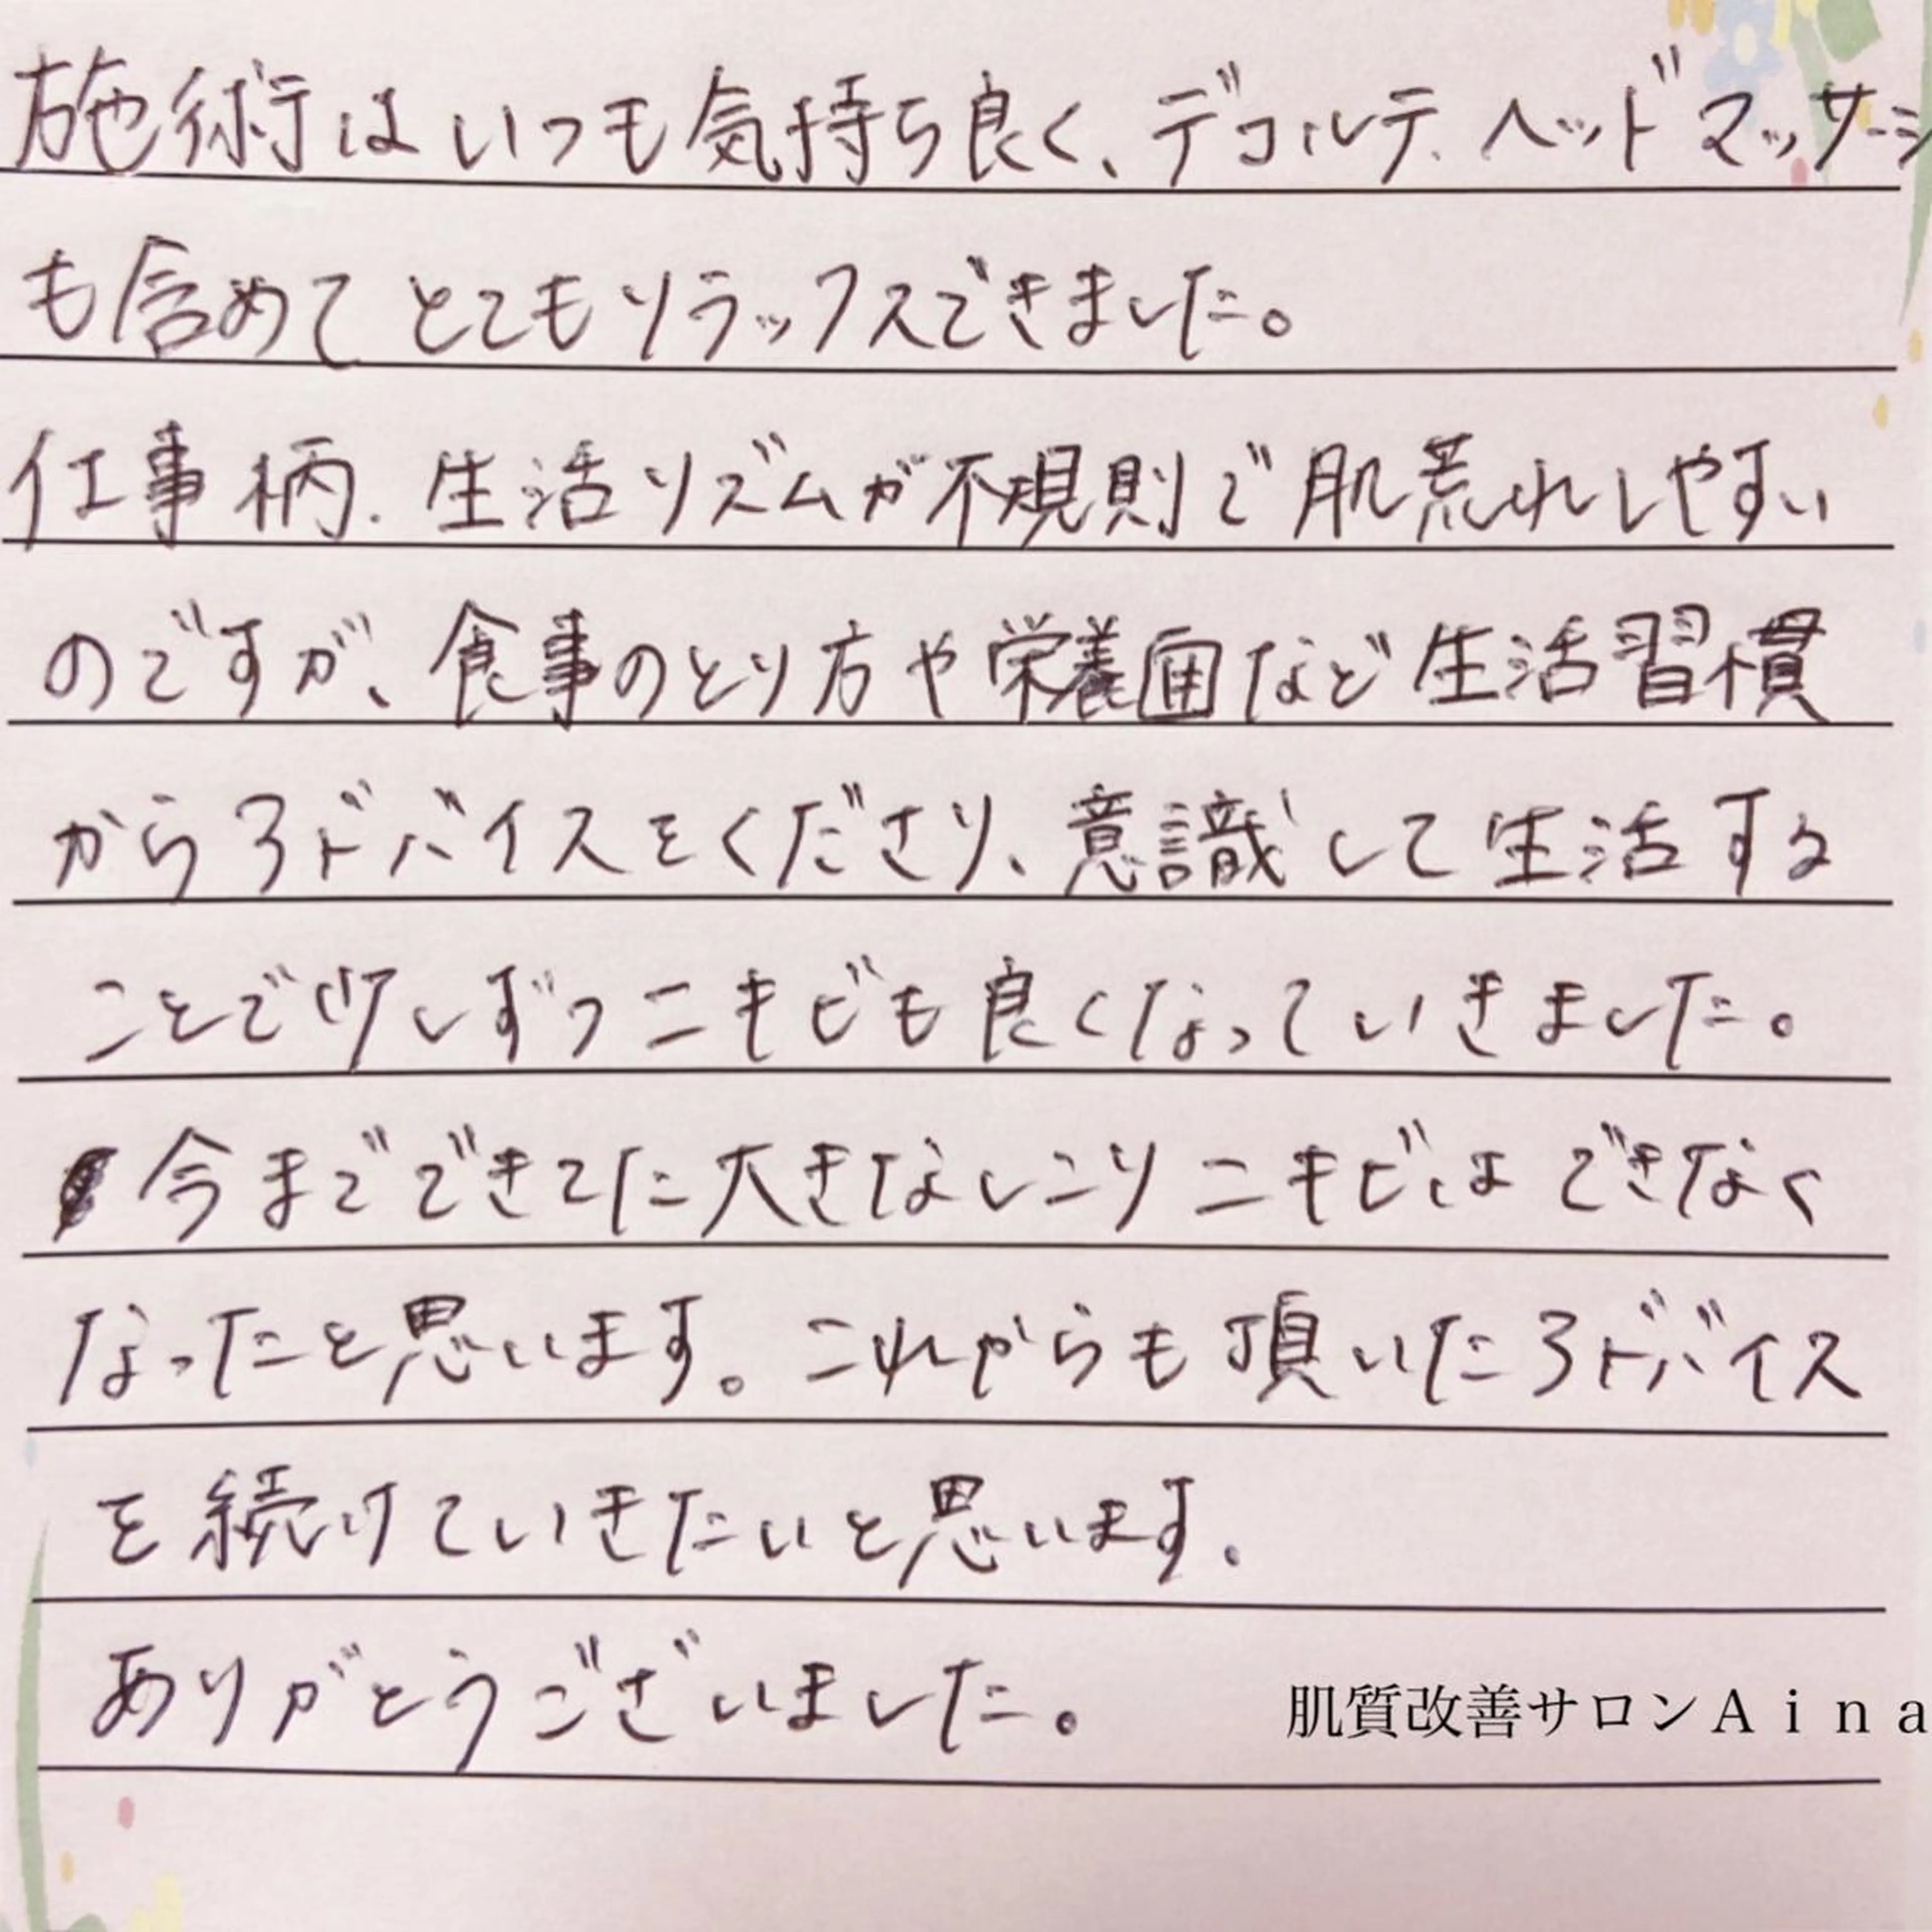 施術はいつも気持ち良く、デコルテ、ヘッドマッサーシ
も含めてとてもリラックスできました。
仕事柄、生活リズムが不規則で肌荒れしやすい
のですが、食事のとり方や栄養面など生活習慣
からアドバイスをくださり、意識して生活する
ことで少しずつニキビも良くなっていきました。
今までできてた大きなしこりニキビはできなく
なったと思います。これからも頂いたアドバイス
を続けていきたいと思います。
ありがとうございました。
肌質改善サロンAina